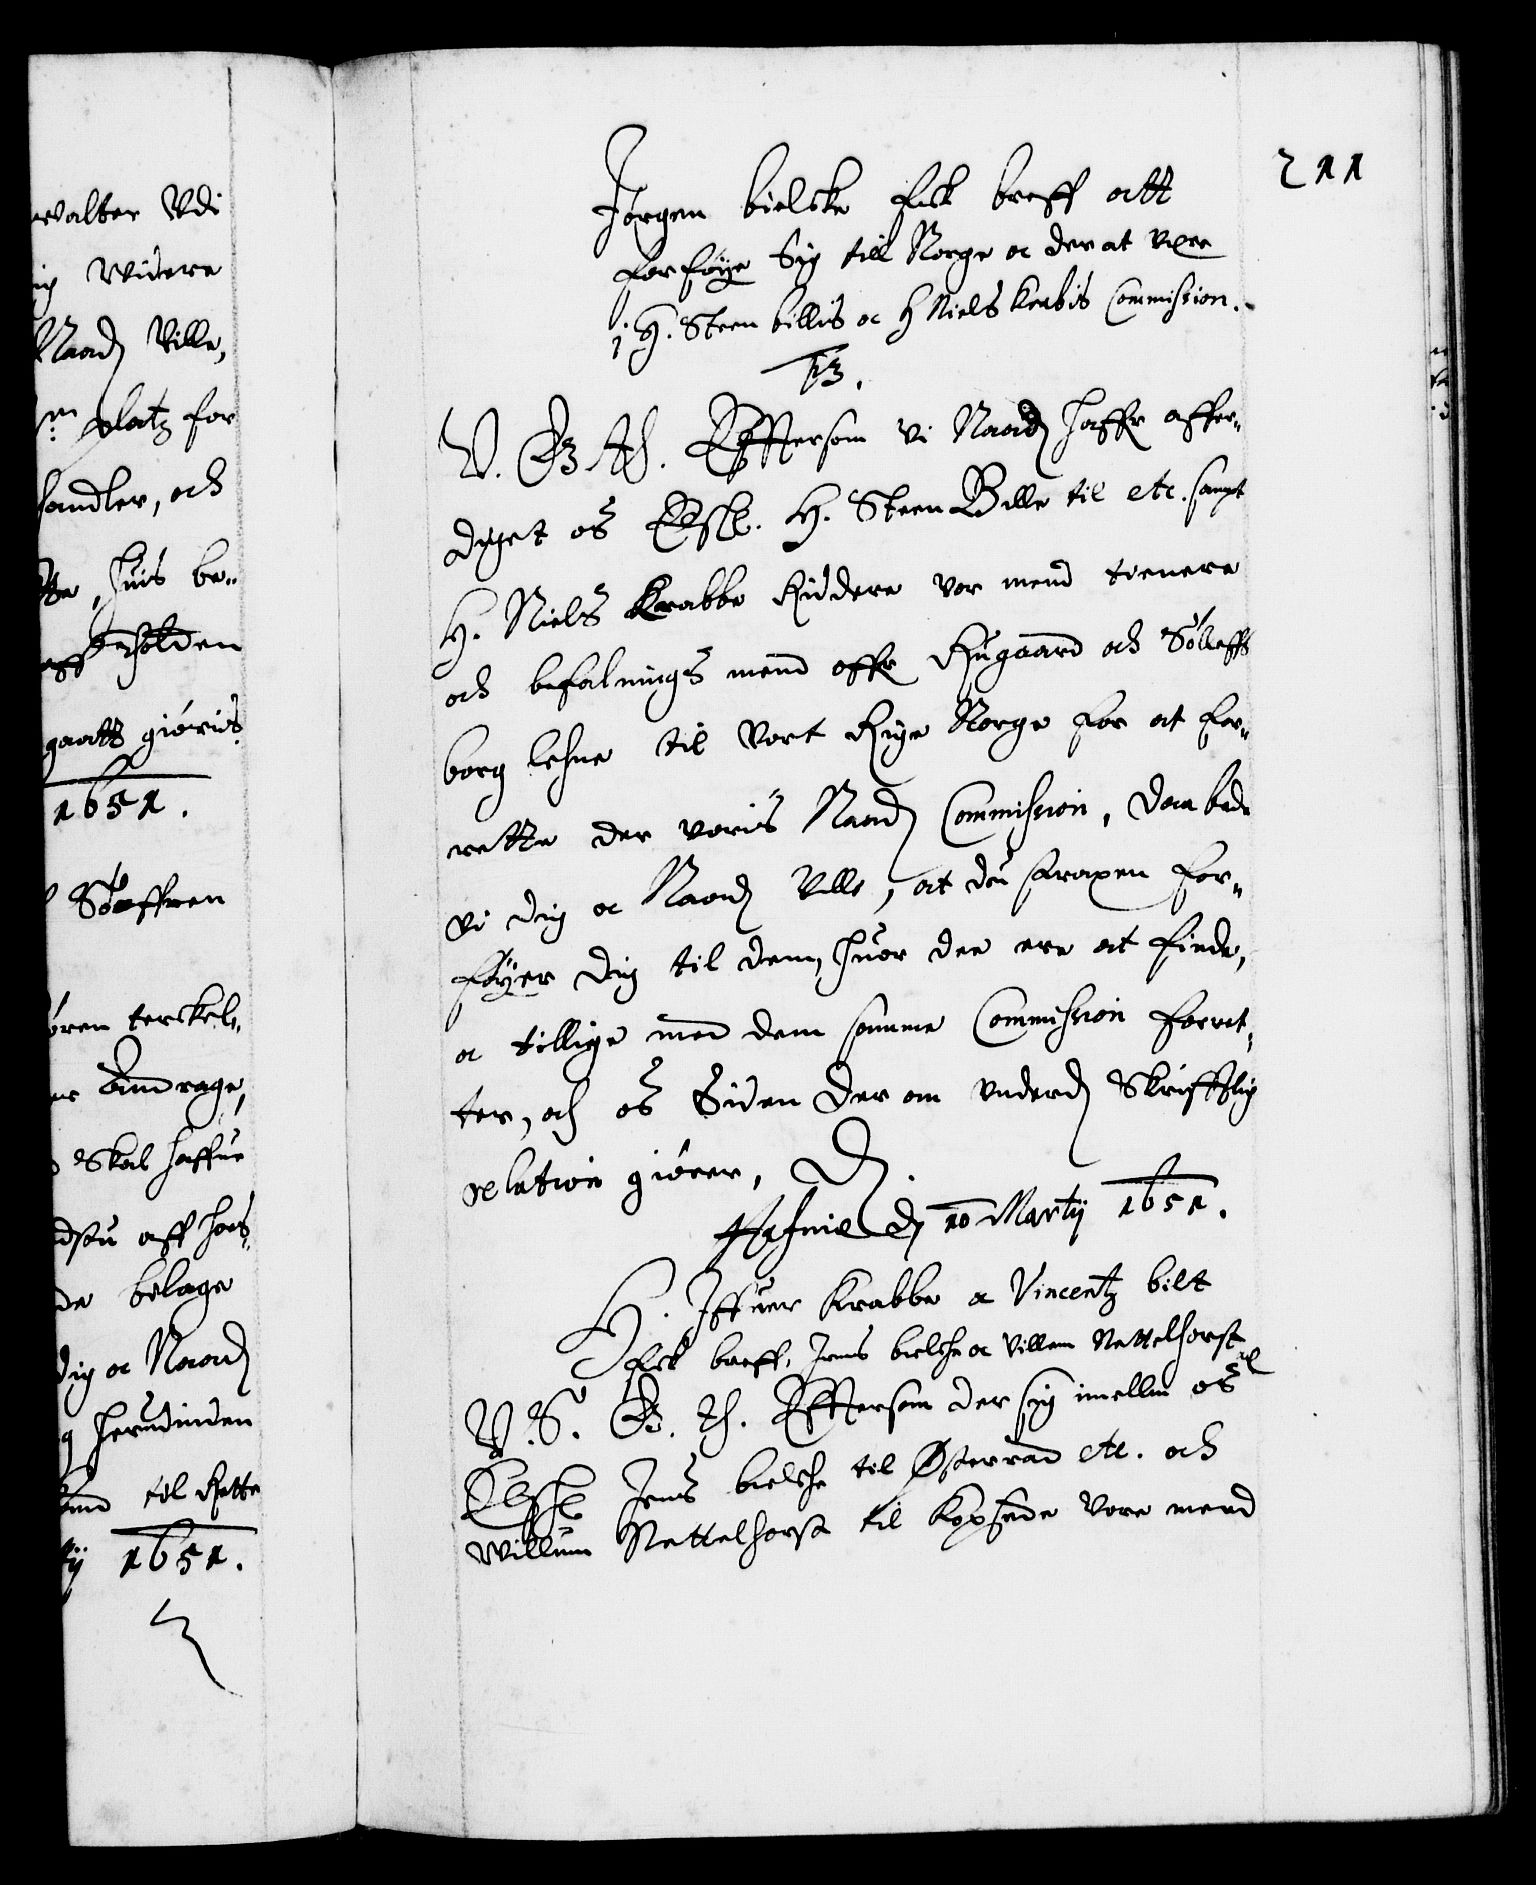 211
Jørgen bielcke fick breff att
forføye Sig till Norge oc der at vere
i H. Steen billis oc H Niels Krabis Commission.
F3.
V. G Th. Effttersom vi Naadst haffr affer-
diget os Elskl. H. Steen Bille til etc. sampt
H. Niels Krabbe Riddere vor mend tienere
och befalnings mend offr Rugaard och Sølleffs
borg lehne til Vort Rige Norge for at for-
rette der voris Naadst Commission, Daa bede
vi dig oc Naadst Ville, at du straxen for-
føyer dig til dem, huor dee ere at finde,
oc tillige med dem samme Commission forret-
ter, och os Siden der om underdst Skrifftlig
relation giører, D.
Hafniæ dj 10 Martij 1651.
H. Iffuer Krabbe oc Vincentz bilt
fick breff, Jens bielche oc Villem Nettelhorst
V. S. G. Th. Effttersom der sig imellem os
Elskl Jens bielche til Østerraad etc. och
Willum Nettelhorst til Kopsede Vore mend
walter Vdi
ig widere
Naadst Ville,
platz for
handler, och
huis be-
holden
gaatt giøris
1651.
Søeffren
øren terckel-
Andrage,
Skal haffue
aff hos-
de belage
dig oc Naadst
herudinden
til Rette
ij 1651.